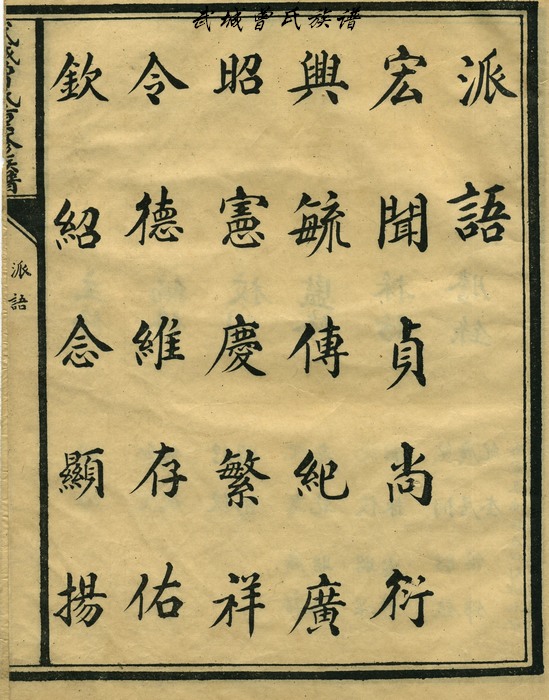 武城曾氏族譜
派語
宏聞貞尚衍
興毓傳紀廣
昭憲慶繁祥
令德維存佑
欽紹念顯揚
派語